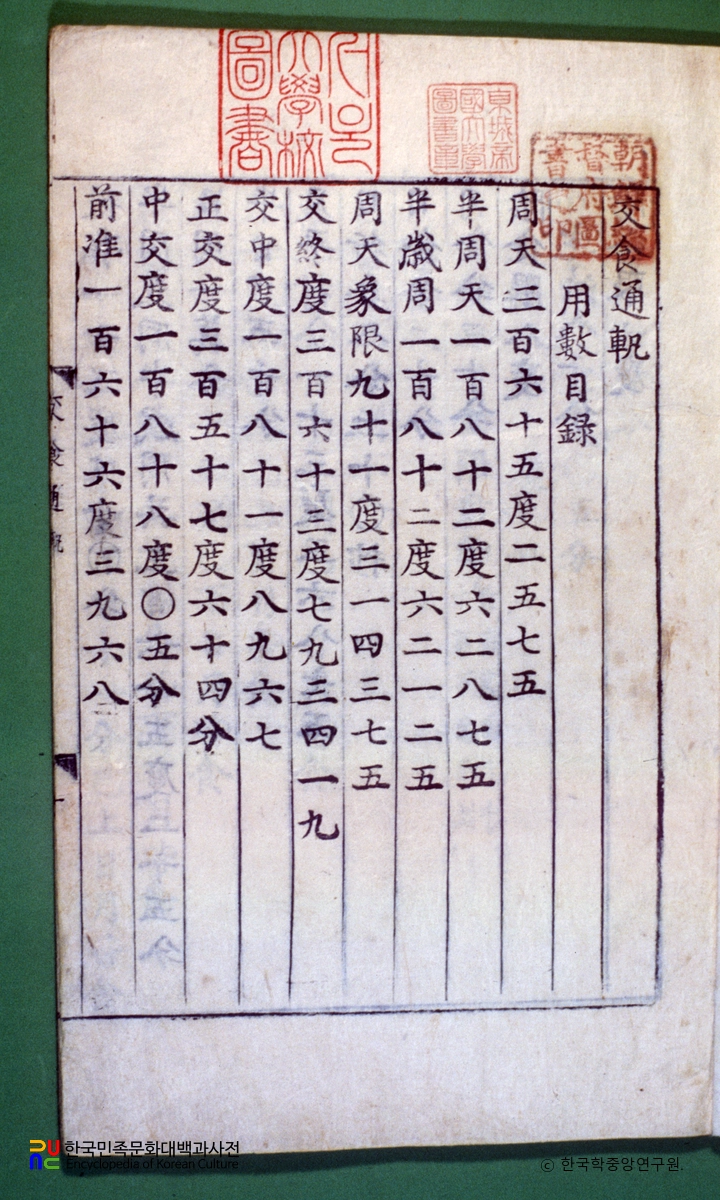 交食通軌
用數目錄
周天三百六十五度二五七五
半周天一百八十二度六二八七五
半歲周一百八十二度六二一二五
周天象限九十一度三一四三七五
交終度三百六十三度七九三四一九
交中度一百八十一度八九六七
正交度三百五十七度六十四分
中交度一百八十八度〇五分
前准一百六十六度三九六八
交食通軌
一
서울
大學校
圖書
京城帝
國大學
圖書章
朝鮮總
督府圖
書之印
한국민족문화대백과사전
Encyclopedia of Korean Culture
© 한국학중앙연구원.